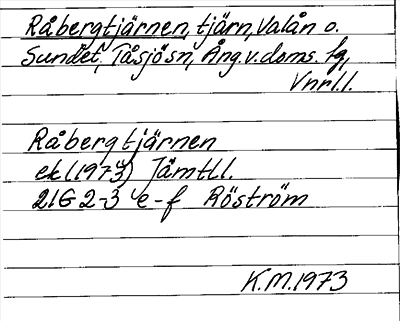 Råbergtjärnen, tjärn, Valån o.
Sundet, Tåsjösn, Ång.v.doms. fg,
Vnrl.l.
Råbergtjärnen
ek (1973) Jämtl l.
21G 2-3 e-f Röström
K.M.1973